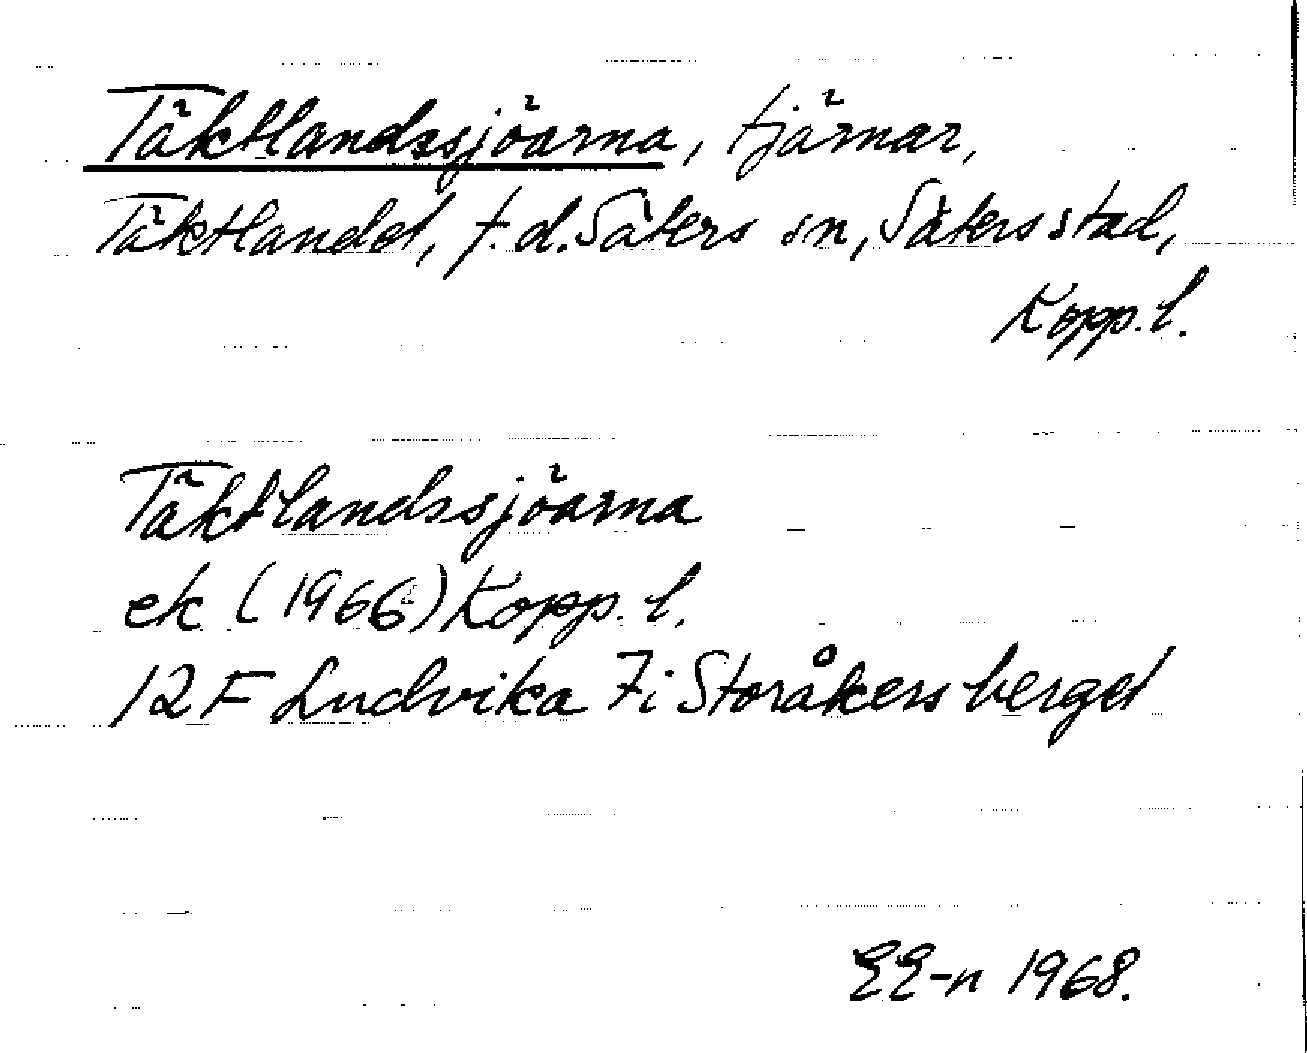 Täktlandssjöarna, tjärnar,
Täktlandet, f.d. Säters sn, Säters stad,
Kopp. l.
Täktlandssjöarna
ek (1966) Kopp. l.
12 F Ludvika 7i Storåkersberget
EE-n 1968.